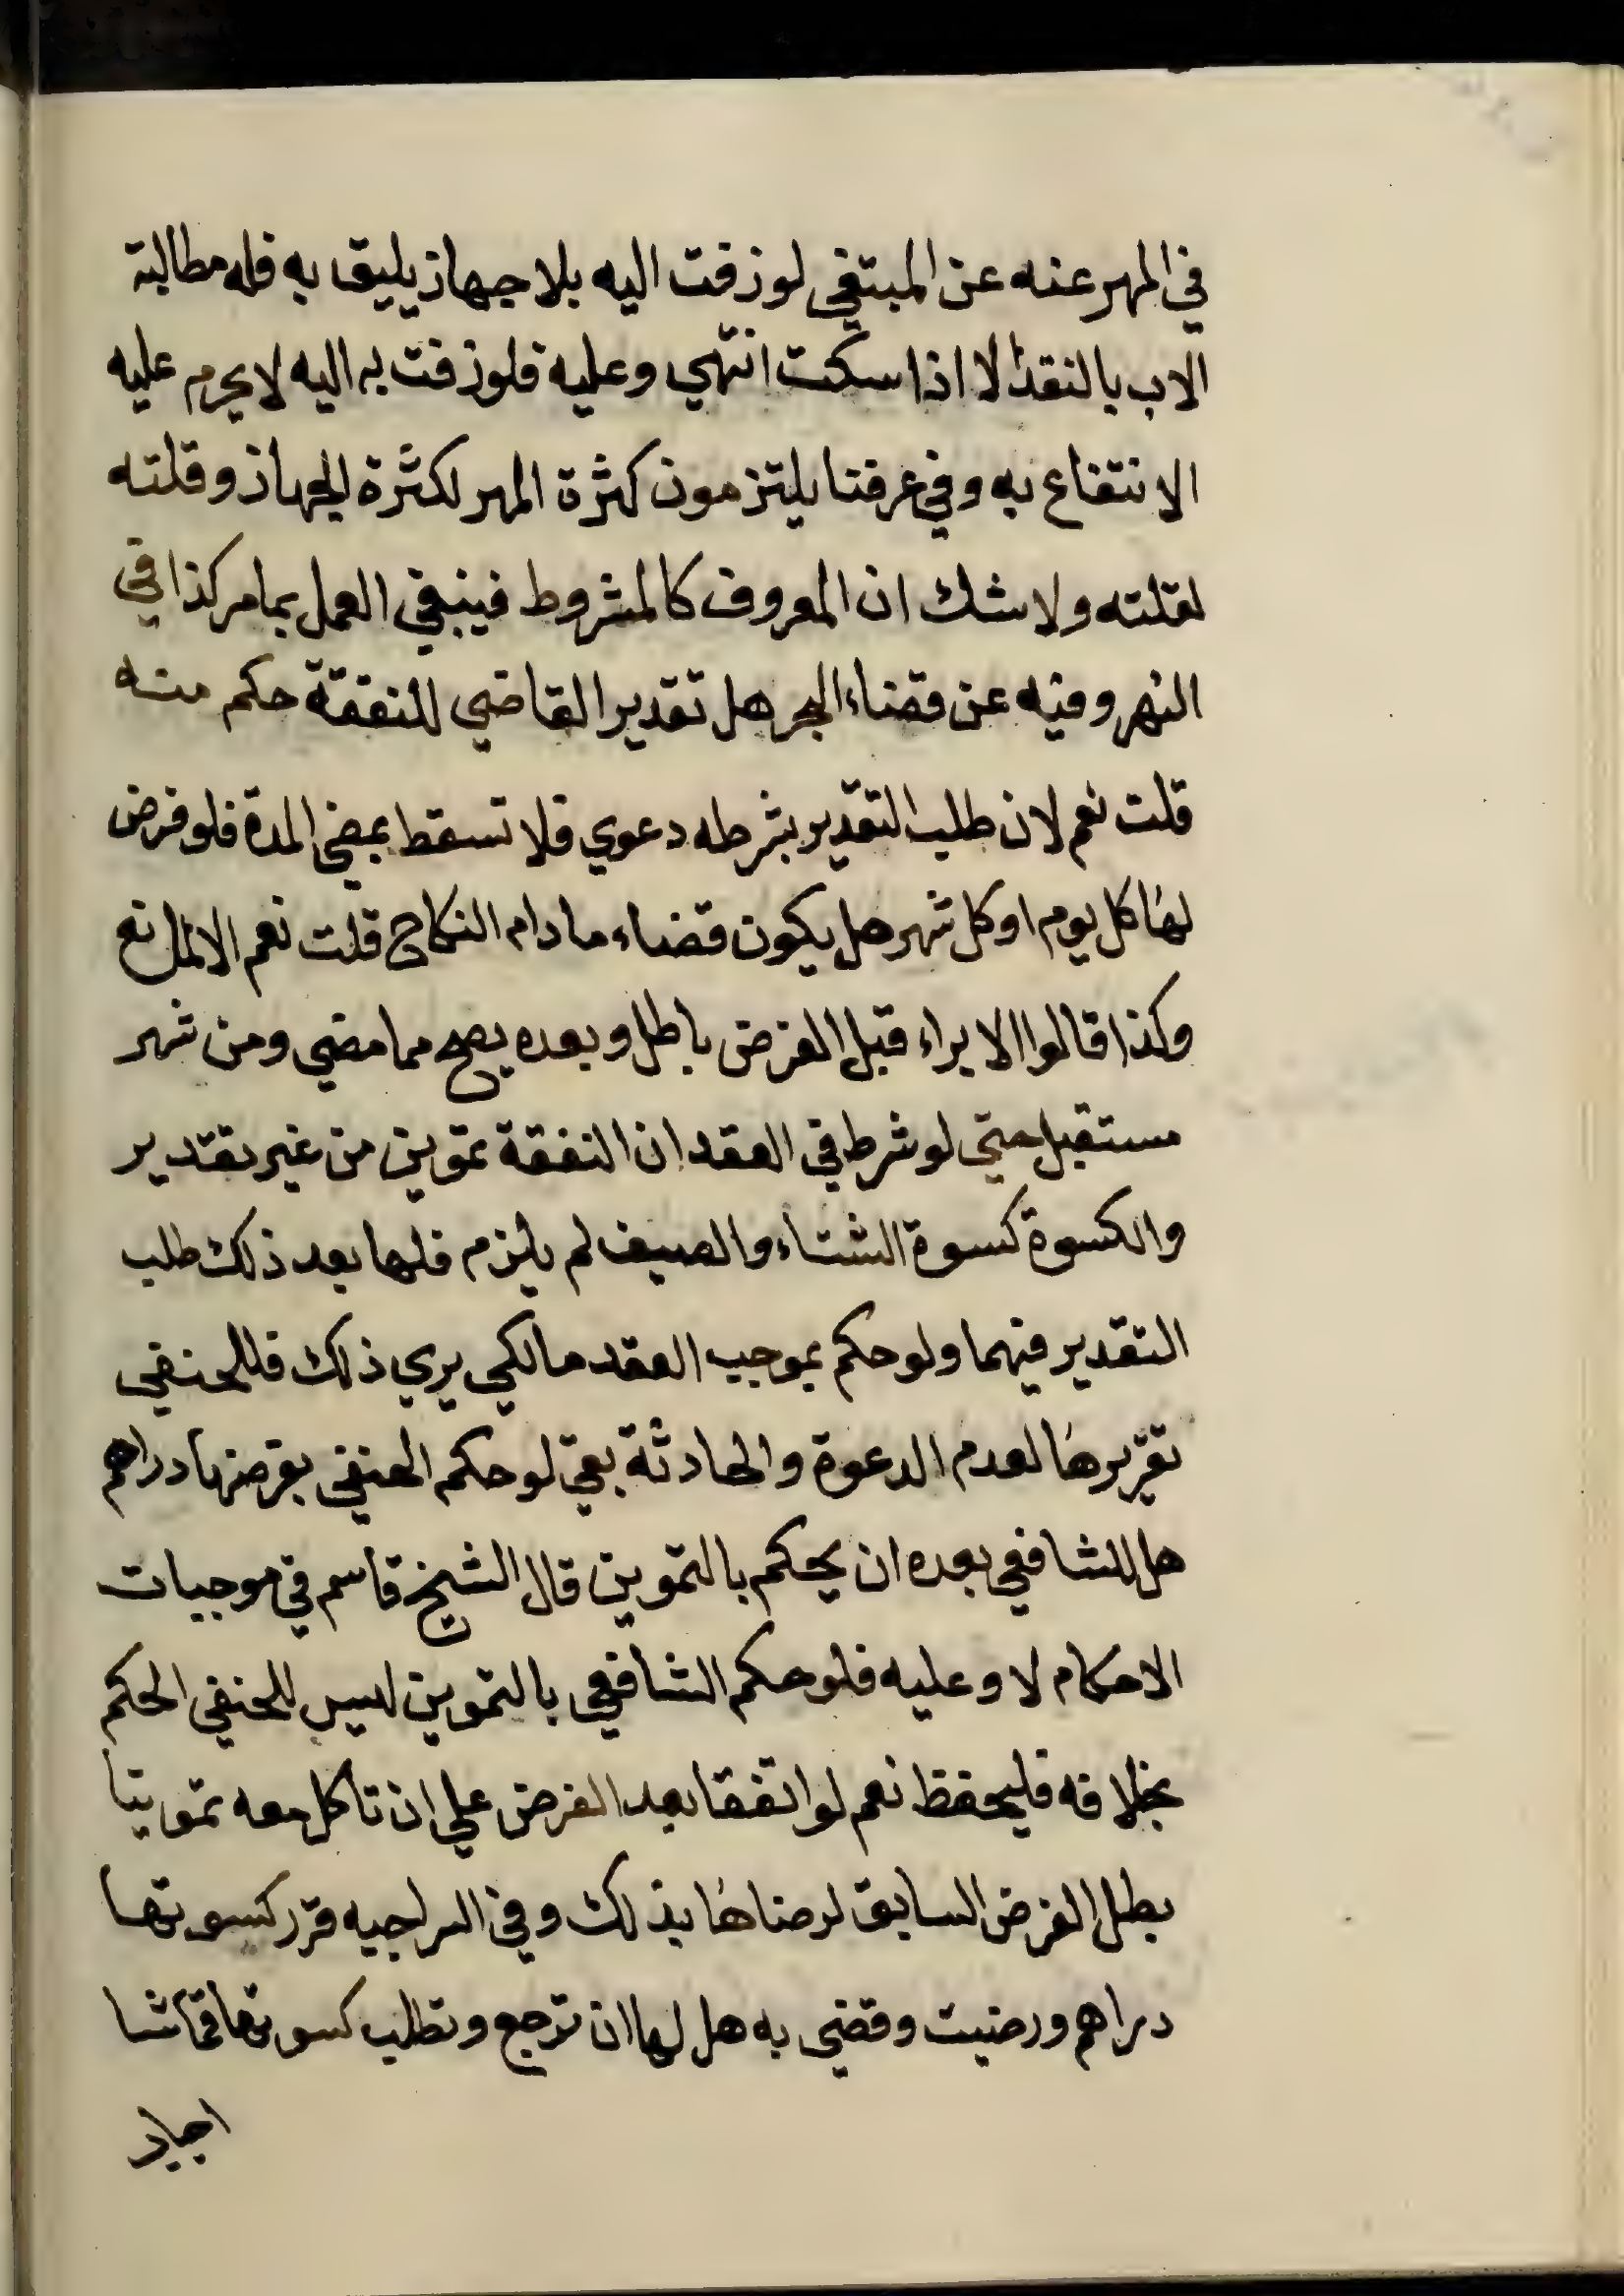 في المهر عنه عن المبتغي لو زفت اليه بلا جهاز يليق به فله مطالبة
الاب بالنقد الا اذا سكت انتهي وعليه فلو زفت به اليه لا يحرم عليه
الانتفاع به وفي عرفنا يلتزمون كثرة المهر لكثرة الجهاز وقلته
لقلته ولا شك ان المعروف كالمشروط فينبغي العمل بما مر كذا في
النهر وفيه عن قضاء البحر هل تقدير القاضي للنفقة حكم منه
قلت نعم لان طلب التقدير بشرطه دعوي فلا تسقط بمضي المدة فلو فرض
لها كل يوم او كل شهر هل يكون قضاء ما دام النكاح قلت نعم الا لمانع
وكذا قالوا الابراء قبل الفرض باطل وبعده يصح مما مضي ومن شهر
مستقبل حتي لو شرط في العقد ان النفقة تموين من غير تقدير
والكسوة كسوة الشتاء والصيف لم يلزم فلها بعد ذلك طلب
التقدير فيهما ولو حكم بموجب العقد مالكي يري ذلك فللحنفي
تقريرها لعدم الدعوة والحادثة بقي لو حكم الحنفي بفرضها دراهم
هل للشافعي بعده ان يحكم بالتموين قال الشيخ قاسم في موجبات
الاحكام لا وعليه فلو حكم الشافعي بالتموين ليس للحنفي الحكم
بخلافه فليحفظ نعم لو اتفقا بعد الفرض علي ان تاكل معه تموينا
بطل الفرض السابق لرضاها بذلك وفي السراجيه قرر كسوتها
دراهم ورضيت وقضي به هل لها ان ترجع وتطلب كسوتها قماشا
اجاب